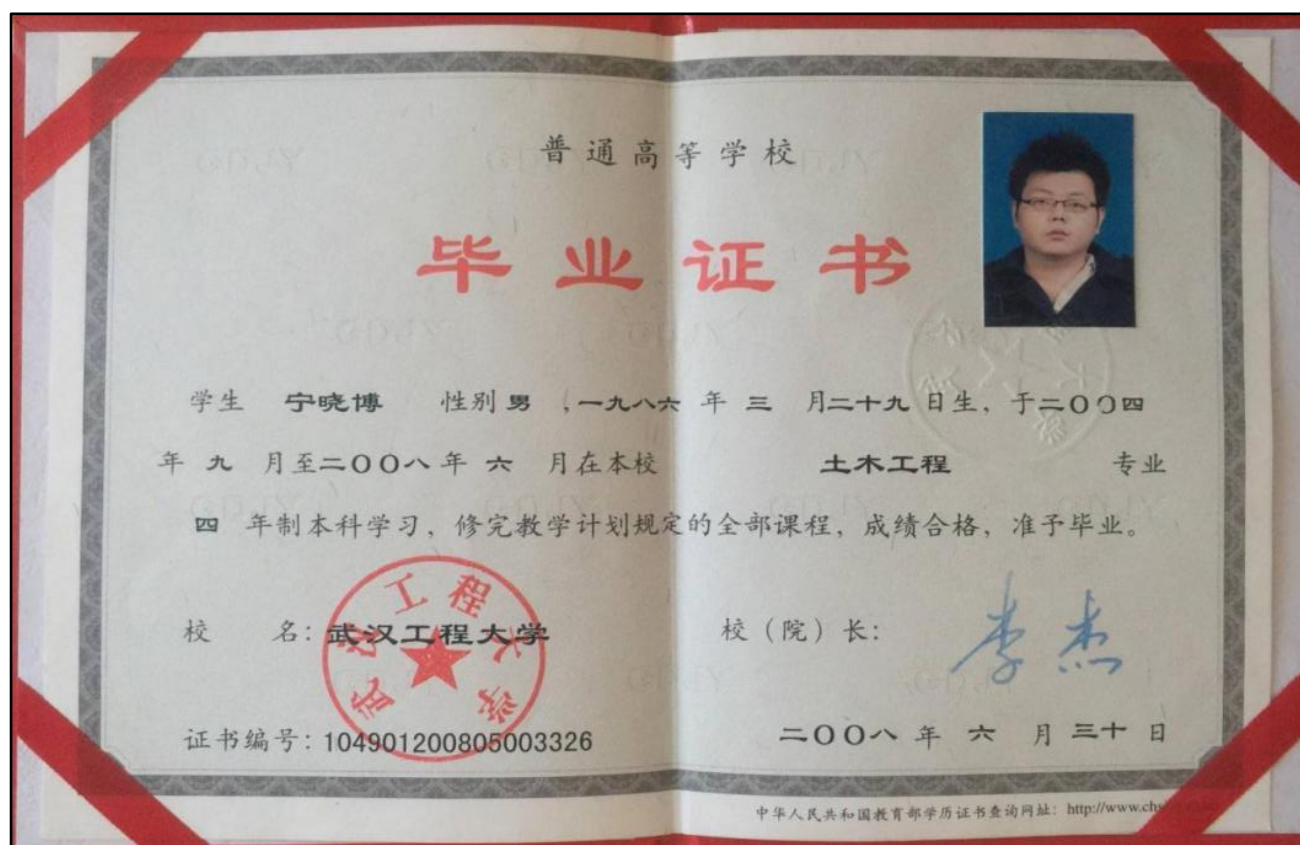 普通高等学校
毕业证书
学生 宁晓博 性别 男 ,一九八六 年 三 月二十九 日生, 于二〇〇四
年 九 月至二〇〇八 年 六 月在本校 土木工程 专业
四 年制本科学习, 修完教学计划规定的全部课程, 成绩合格, 准予毕业。
武汉工程大学
校 名: 武汉工程大学 校（院）长: 李杰
证书编号: 104901200805003326 二〇〇八 年 六 月 三十 日
中华人民共和国教育部学历证书查询网址: http://www.ch